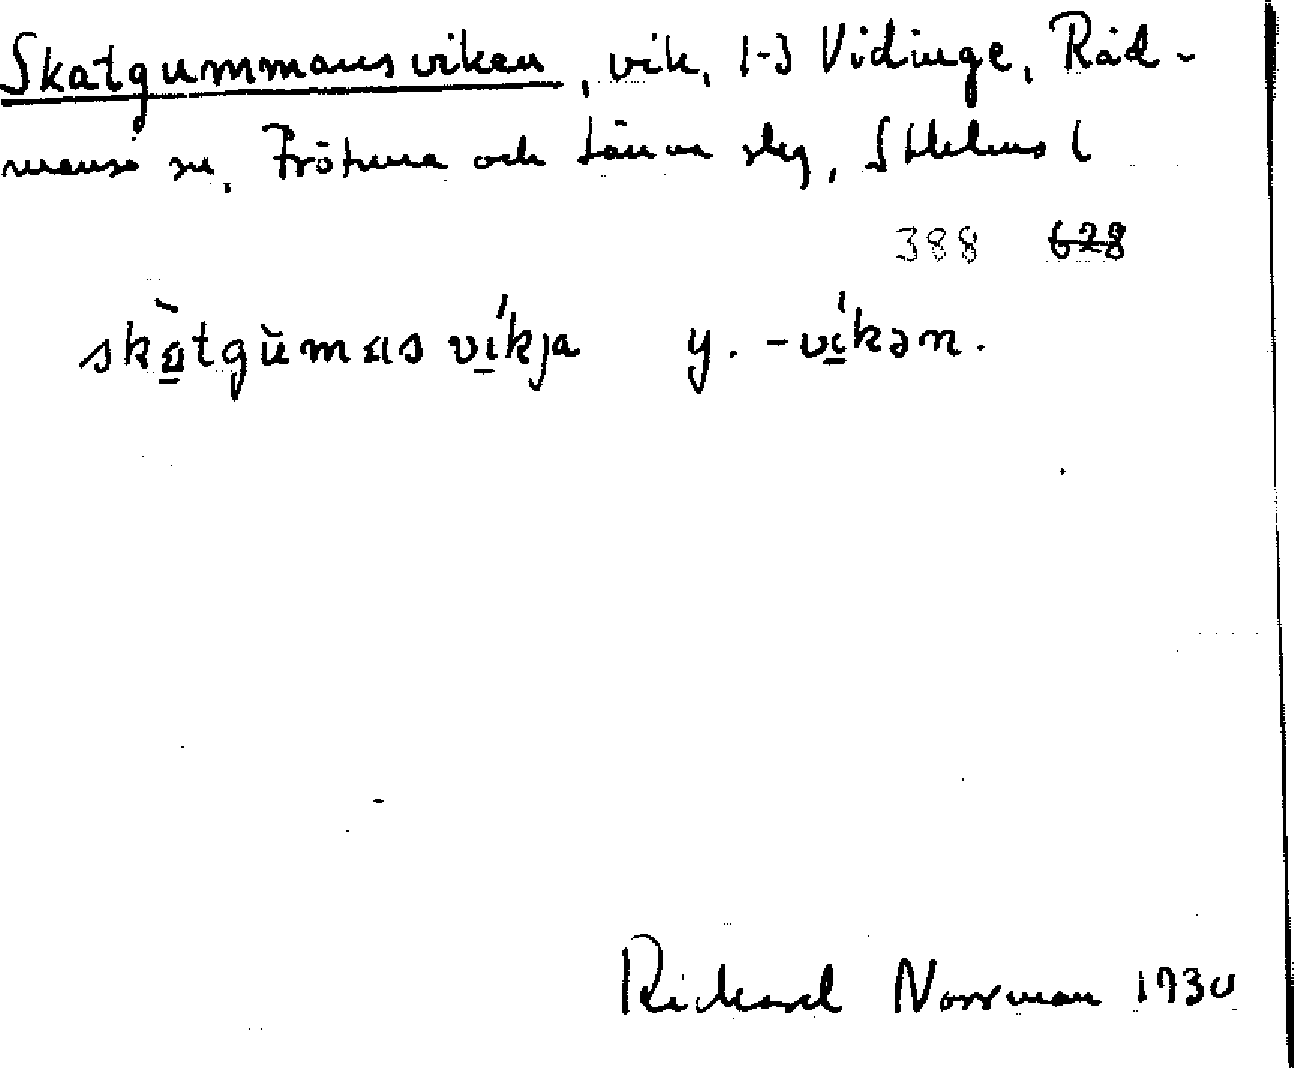 Skatgummansviken, vik, 1-3 Vidinge, Råd-
mansö sn, Frötuna och Länna slg, Sthlms l
388 628
skàtgùmas víkja y. -víkən.
Rickard Norrman 1930